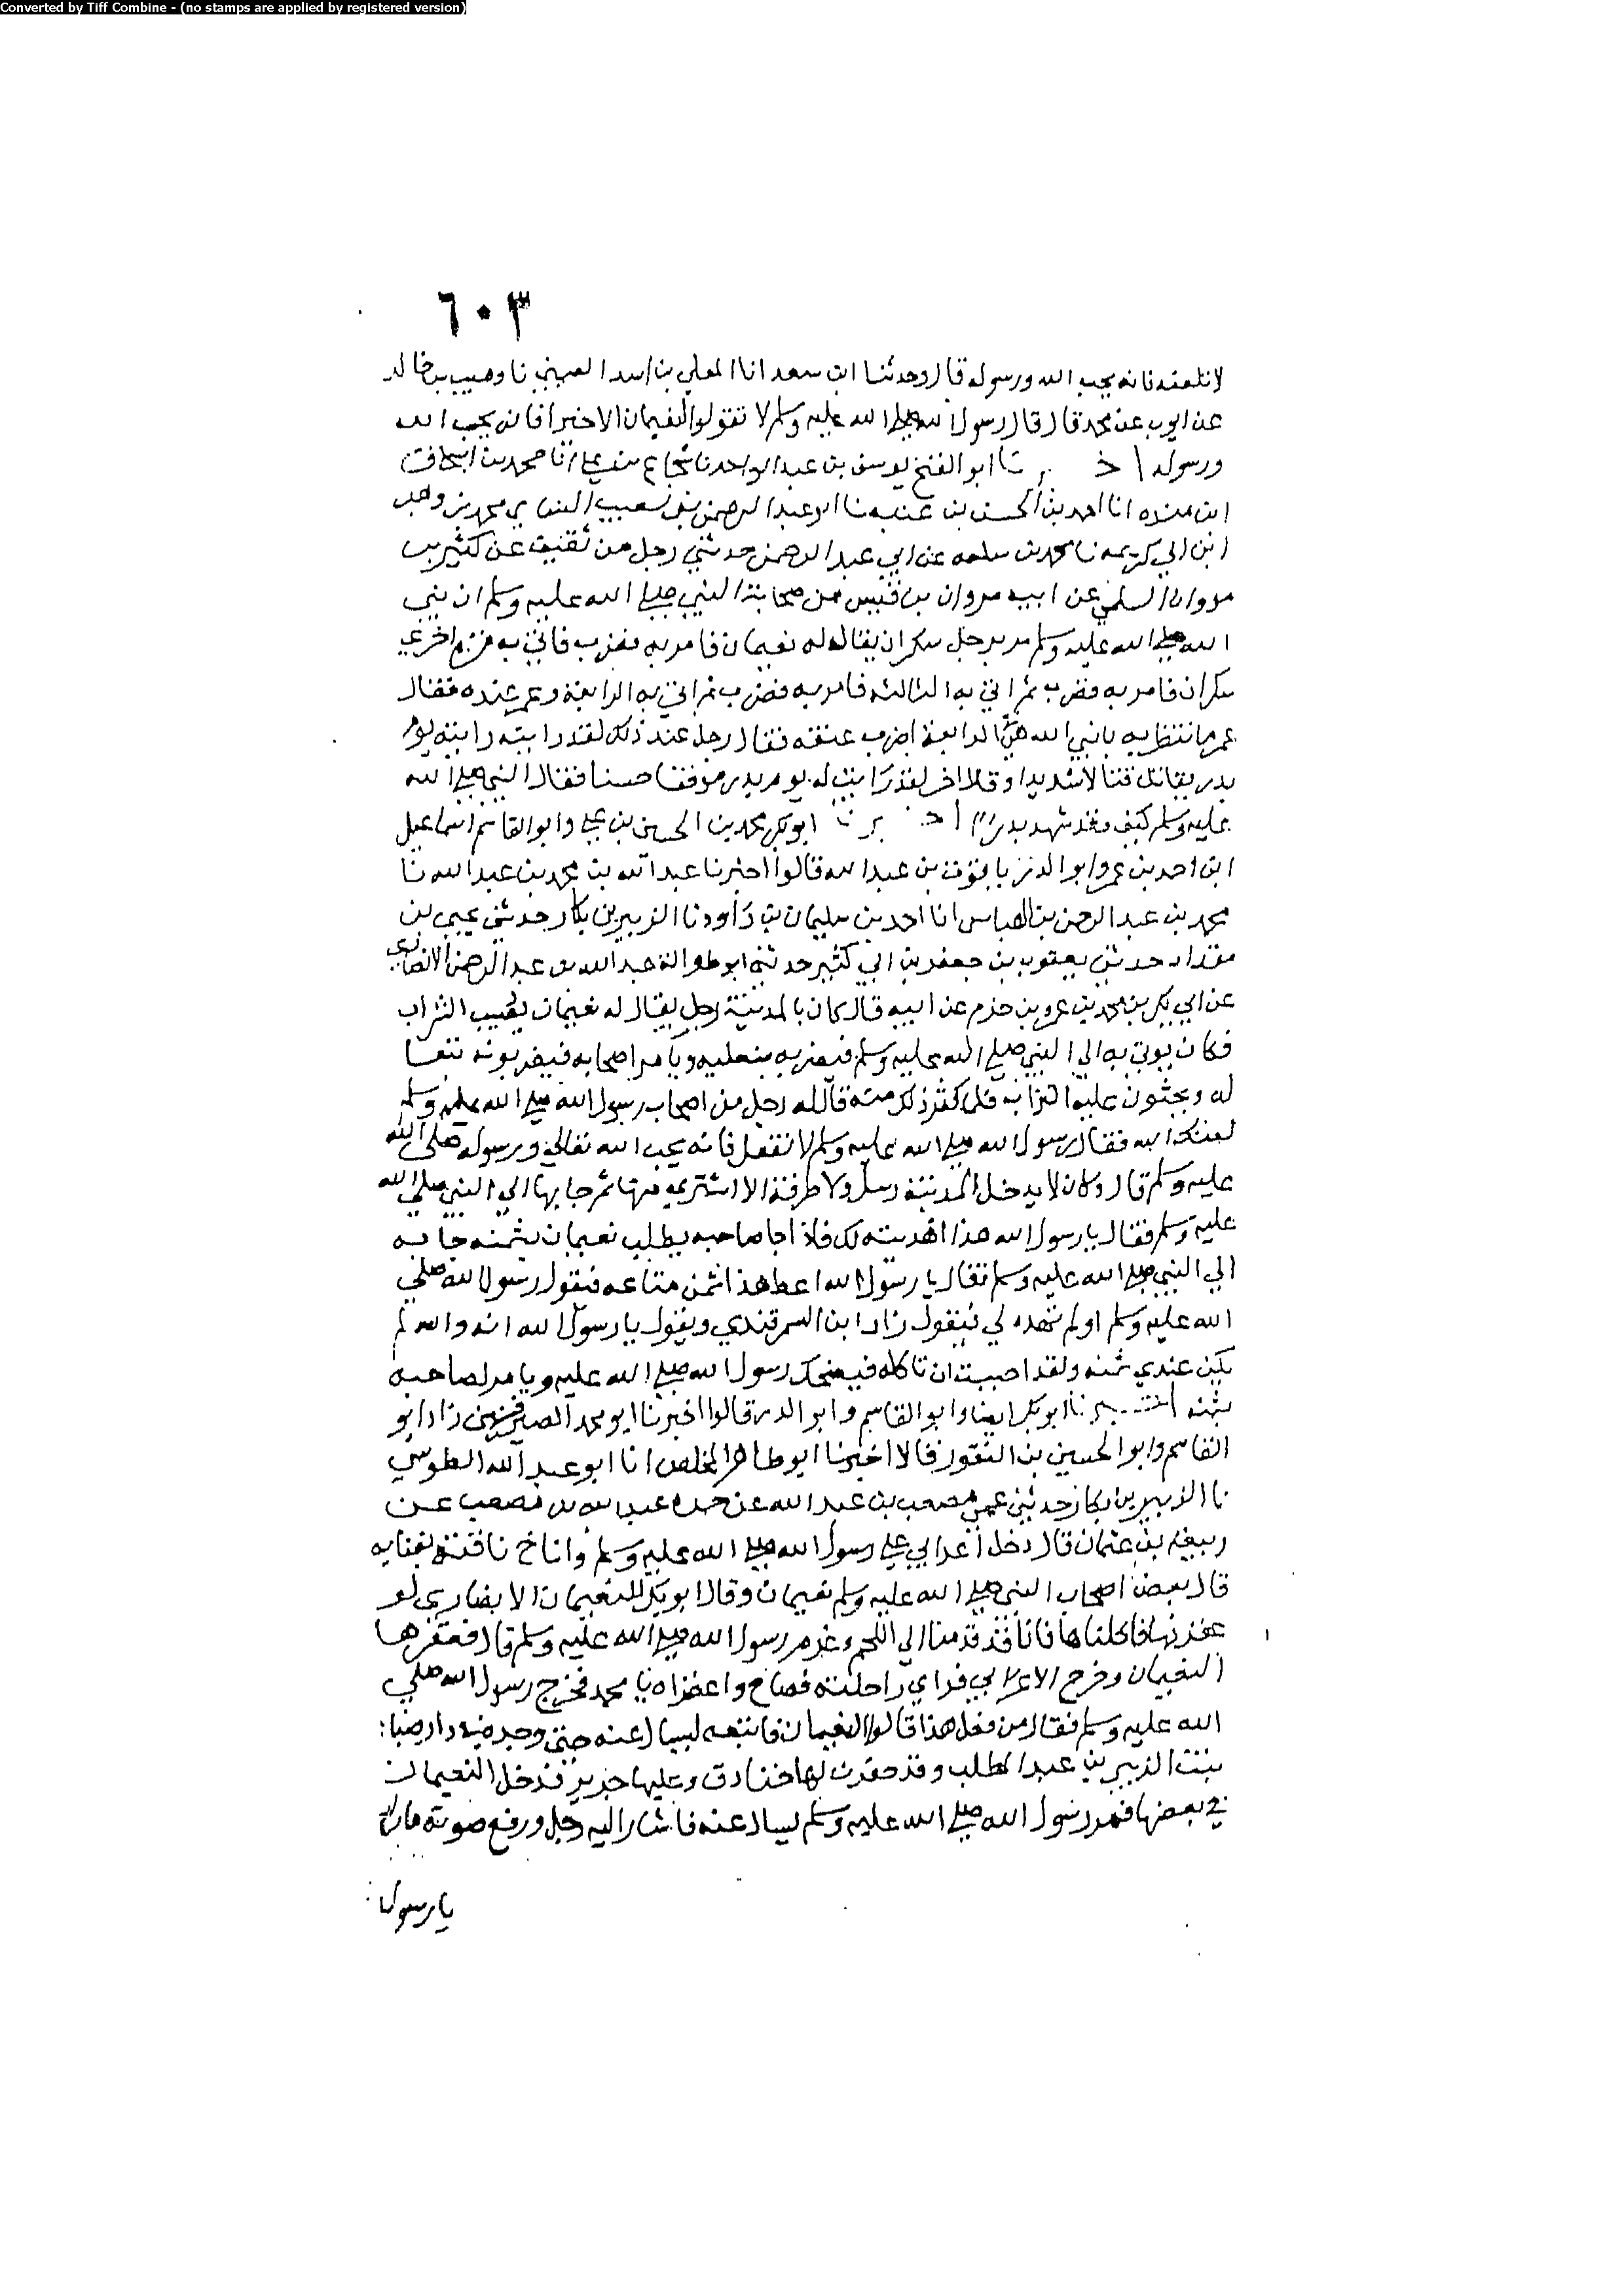 Converted by Tiff Combine - (no stamps are applied by registered version)
٦٠٣
لا تلعنه فانه يحب الله ورسوله قال وحدثنا ابن سعد انا المعلي بن اسد العمي نا وهيب بن خالد
عن ايوب عن محمد قال قال رسول الله صلي الله عليه وسلم لا تقولوا لنعيمان الا خيرا فانه يحب الله
ورسوله اخبرنا ابو الفتح يوسف بن عبد الواحد نا شجاع بن علي انا محمد بن اسحاق
ابن منده انا احمد بن الحسن بن عتبه نا ابو عبد الرحمن بن شعيب النساي محمد بن وهب
ابن ابي كريمه نا محمد بن سلمه عن ابي عبد الرحمن حدثني رجل من ثقيف عن كثير بن
مروان السلمي عن ابيه مروان بن قيس من صحابة النبي صلي الله عليه وسلم ان نبي
الله صلي الله عليه وسلم مر برجل سكران يقال له نعيمان فامر به فضرب فاتي به مرة اخري
سكران فامر به فضرب ثم اتي به الثالثه فامر به فضرب ثم اتي به الرابعة وعمر عنده فقال
عمر ما ننتظر به يا نبي الله هي الرابعة اضرب عنقه فقال رجل عند ذلك لقد رايته يوم
بدر يقاتل قتالا شديدا وقال اخر لقد رايت له يوم بدر موقفا حسنا فقال النبي صلي الله
عليه وسلم كيف وقد شهد بدرا اخبرنا ابو بكر محمد بن الحسين بن علي وابو القاسم اسماعيل
ابن احمد بن عمر وابو الدر ياقوت بن عبد الله قالوا اخبرنا عبد الله بن محمد بن عبد الله نا
محمد بن عبد الرحمن بن العباس انا احمد بن سليمان بن داود نا الزبير بن بكار حدثني يحيي بن
مقداد حدثني يعقوب بن جعفر بن ابي كثير حدثني ابو طوالة عبد الله بن عبد الرحمن الانصاري
عن ابي بكر بن محمد بن عمرو بن حزم عن ابيه قال كان بالمدينة رجل يقال له نعيمان يصيب الشراب
فكان يوتي به الي النبي صلي الله عليه وسلم فيضربه بنعليه ويامر اصحابه فيضربونه بنعا
له ويحثون عليه التراب فلما كثر ذلك منه قال له رجل من اصحاب رسول الله صلي الله عليه وسلم
لعنك الله فقال رسول الله صلي الله عليه وسلم لا تفعل فانه يحب الله تعالي ورسوله صلي الله
عليه وسلم قال وكان لا يدخل المدينة رسل ولا طرفة الا اشتري منها ثم جا بها الي النبي صلي الله
عليه وسلم فقال يا رسول الله هذا اهديته لك فاذا جا صاحبه يطلب نعيمان بثمنه جا به
الي النبي صلي الله عليه وسلم فقال يا رسول الله اعط هذا ثمن متاعه فيقول رسول الله صلي
الله عليه وسلم اولم تهده لي فيقول زاد ابن السمرقندي ويقول يا رسول الله انه والله لم
يكن عندي ثمنه ولقد احببت ان تاكله فيضحك رسول الله صلي الله عليه ويامر لصاحبه
بثمنه اخبرنا ابو بكر ايضا وابو القاسم وابو الدر قالوا اخبرنا ابو محمد الصريفيني زاد ابو
القاسم وابو الحسين بن النقور قالا اخبرنا ابو طاهر المخلص انا ابو عبد الله الطوسي
نا الزبير بن بكار حدثني عمي مصعب بن عبد الله عن جده عبد الله بن مصعب عن
ربيعة بن عثمان قال دخل اعرابي علي رسول الله صلي الله عليه وسلم واناخ ناقته بفنايه
قال بعض اصحاب النبي صلي الله عليه وسلم نعيمان وقال ابو بكر للنعيمان الانصاري لو
عقرتها فاكلناها فانا قد قرمنا الي اللحم وغرم رسول الله صلي الله عليه وسلم قال فعقرها
النعيمان وخرج الاعرابي فراي راحلته فصاح واعقراه يا محمد فخرج رسول الله صلي
الله عليه وسلم فقال من فعل هذا قالوا النعيمان فاتبعه ليسال عنه حتي وجده في دار ضبا
بنت الزبير بن عبد المطلب وقد حفرت لها خنادق وعليها جريد فدخل النعيمان
في بعضها فمر رسول الله صلي الله عليه وسلم ليسال عنه فاشار اليه رجل ورفع صوته
يا رسول